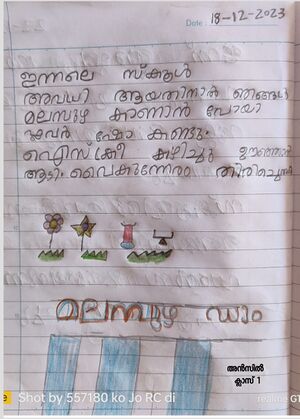 Date: 18-12-2023
ഇന്നലെ സ്കൂൾ
അവധി ആയതിനാൽ ഞങ്ങൾ
മലമ്പുഴ കാണാൻ പോയി
ഫ്ലവർ ഷോ കണ്ടു.
ഐസ്ക്രീം കഴിച്ചു ഊഞ്ഞാൽ
ആടി. വൈകുന്നേരം തിരിച്ചു
മലമ്പുഴ ഡാം
അൻസിൽ
ക്ലാസ് 1
Shot by 557180 ko Jo RC di
realme